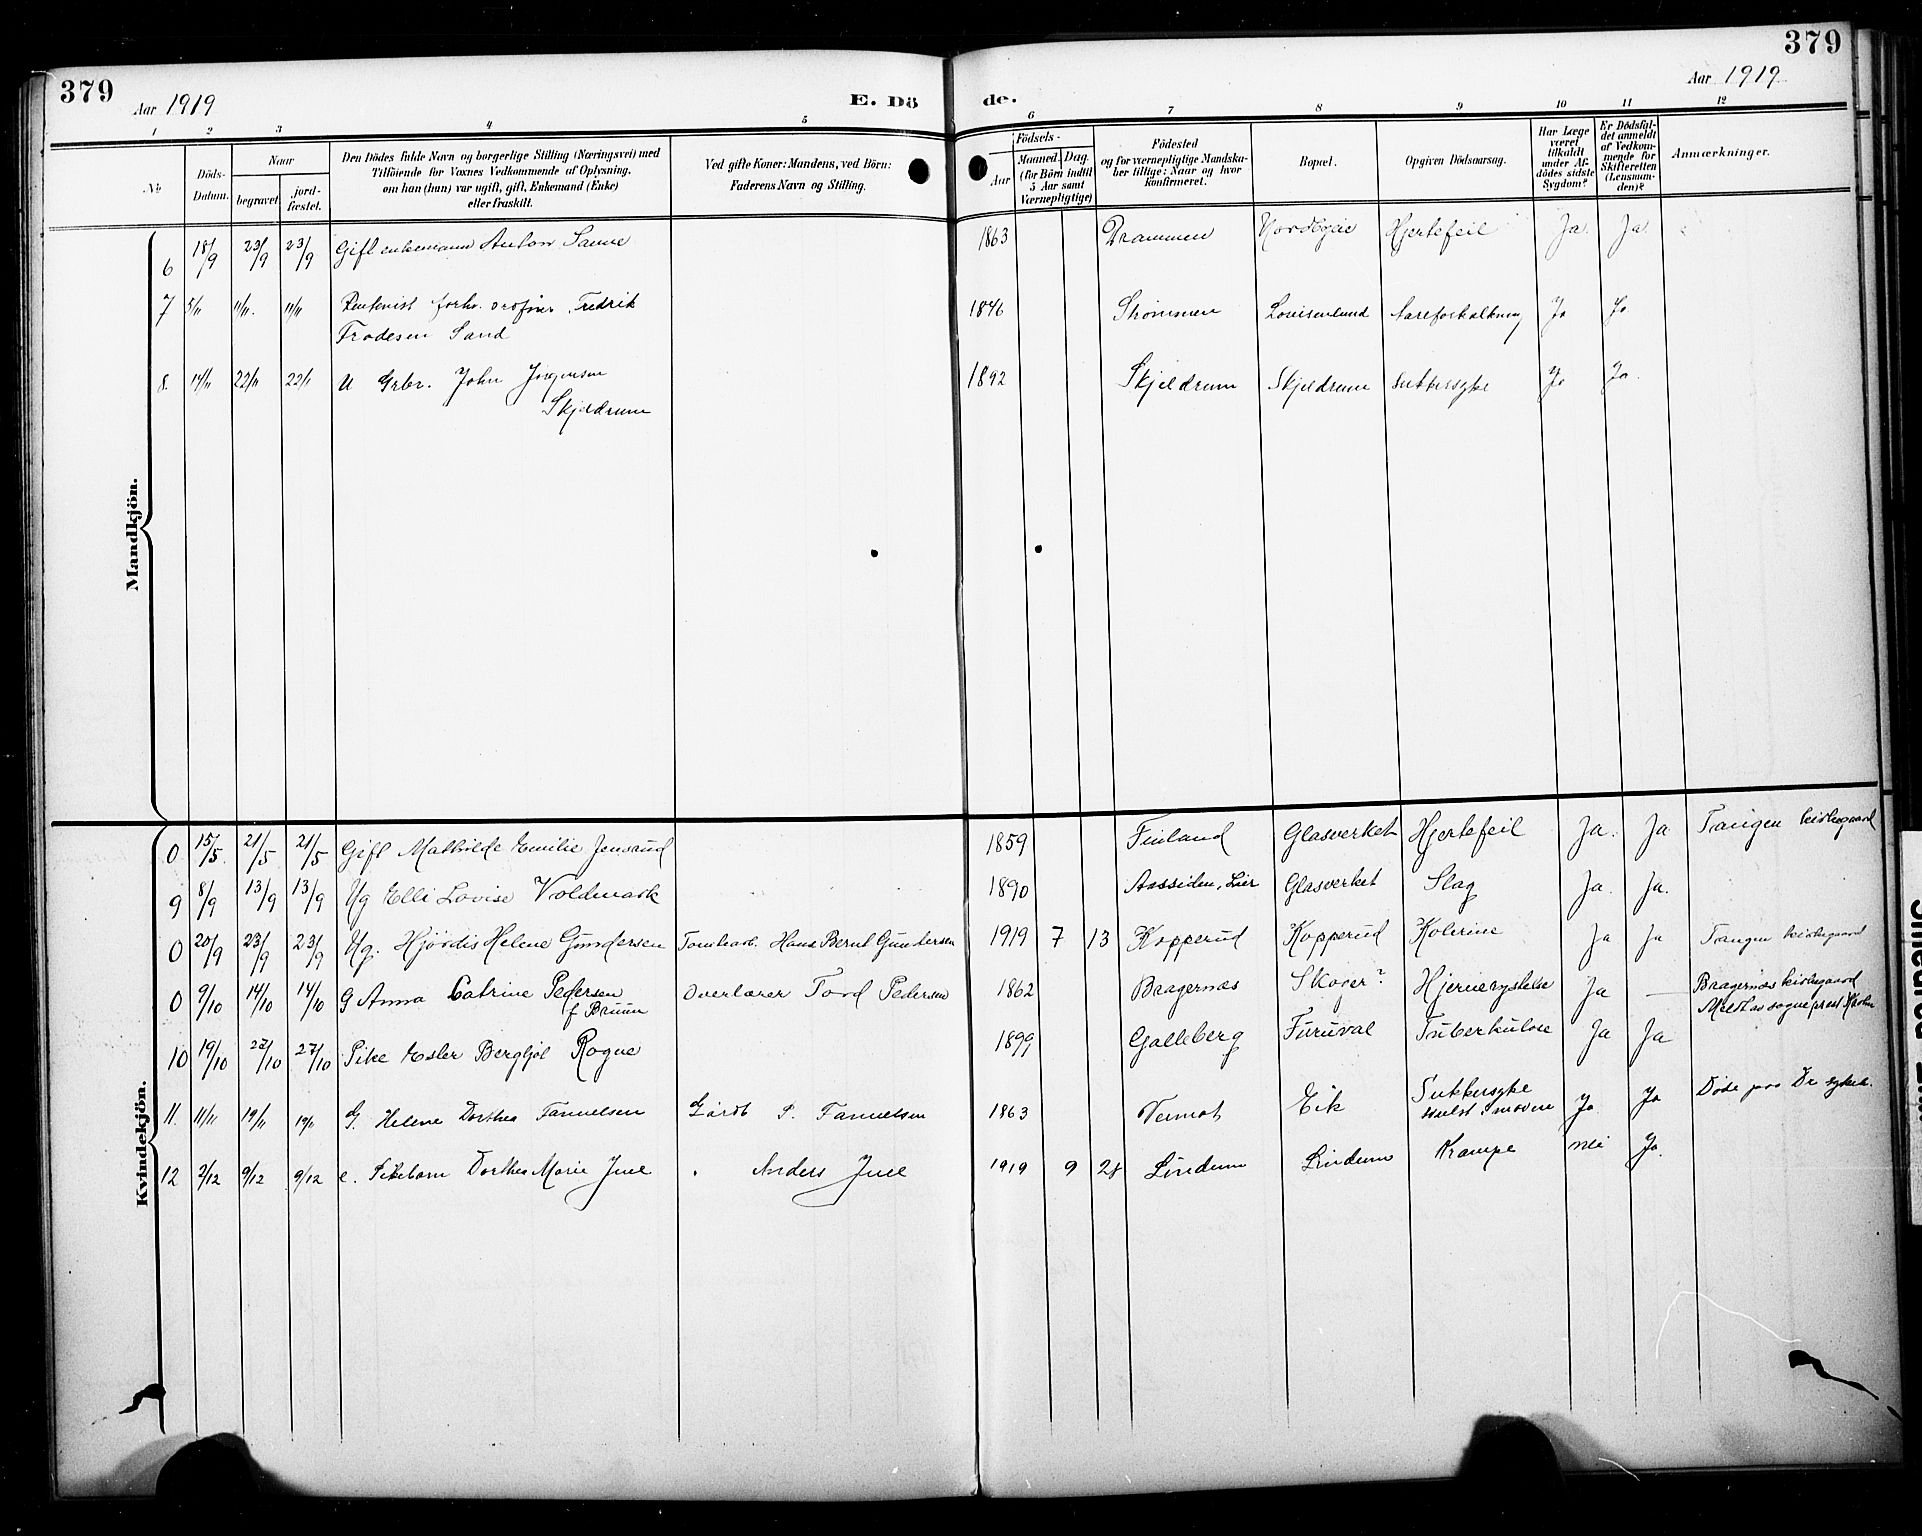 379
Aar 1919
E. Dö
de.
Aar 1919
379
1 2 3 4 5 6 7 8 9 10 11 12
No
Döds-Datum.
Naar
begravet
jordfæstet.
Den Dödes fulde Navn og borgerlige Stilling (Næringsvei) med
Tilföiende for Voxnes Vedkommende af Oplysning,
om han (hun) var ugift, gift, Enkemand (Enke)
eller fraskilt.
Ved gifte Koner: Mandens, ved Börn:
Faderens Navn og Stilling.
Födsels-
Aar
Maaned. Dag.
(for Börn indtil
5 Aar samt
Værnepligtige)
Födested
og for værnepligtige Mandska-
ber tillige: Naar og hvor
konfirmeret.
Bopæl.
Opgiven Dödsaarsag.
Har Læge
været
tilkaldt
under Af-
dödes sidste
Sygdom?
Er Dödsfal-
det anmeldt
af Vedkom-
mende for
Skifteretten
(Lensman-
den)?
Anmærkninger.
Mandkjön.
6 18/9 23/9 23/9 Gift enkemann Anton Sanne 1863 Drammen Hjertefeil Ja. Ja.
7 5/11 11/11. 11/11 Fredrik 1846 Strømmen Lovisenlund Aareforkalkning Ja Ja
Frodesen Sand
8. 14/11 22/11 22/11 U Grbr. John Jørgensen 1892 Skjeldrum Skjeldrum Sukkersyke Ja Ja.
Skjeldrum
Kvindekjön.
0 15/5. 21/5 21/5 Gift Mathilde Emilie Jensrud 1859 Finland Glasverket Hjertefeil Ja. Ja Tangen kirkegaard
9 8/9 13/9 13/9 Ug Elli Lovise Voldmark 1890 Aassiden, Lier Glasverket Slag Ja. Ja.
0 20/9 23/9 23/9 Ug. Hjørdis Helene Gundersen Tomtearb. Hans Bernt Gundersen 1919 7 13 Kopperud Kopperud Kolerine Ja Ja Tangen kirkegaard
0 9/10 14/10 14/10 G Anna Catrine Pedersen Overlærer Tord Pedersen 1862 Bragernæs Skoger? Hjernerystelse Ja — Bragernæs kirkegaard
f Bruun sogneprest
10 19/10 27/10 27/10 Pike Ester Bergljot Rogne 1899 Galleberg Furuval Tuberkulose Ja Ja
11. 11/11 19/11 19/11 G. Helene Dorthea Samuelsen Gårdb S. Samuelsen 1863 Vermot Eik Sukkersyke Ja Ja Døde paa Dr sykeh.
12 2/12 9/12 9/12 e. Pikebarn Dorthea Marie Juel " Anders Juel 1919 9 28 Lindum Lindum Krampe nei Ja.